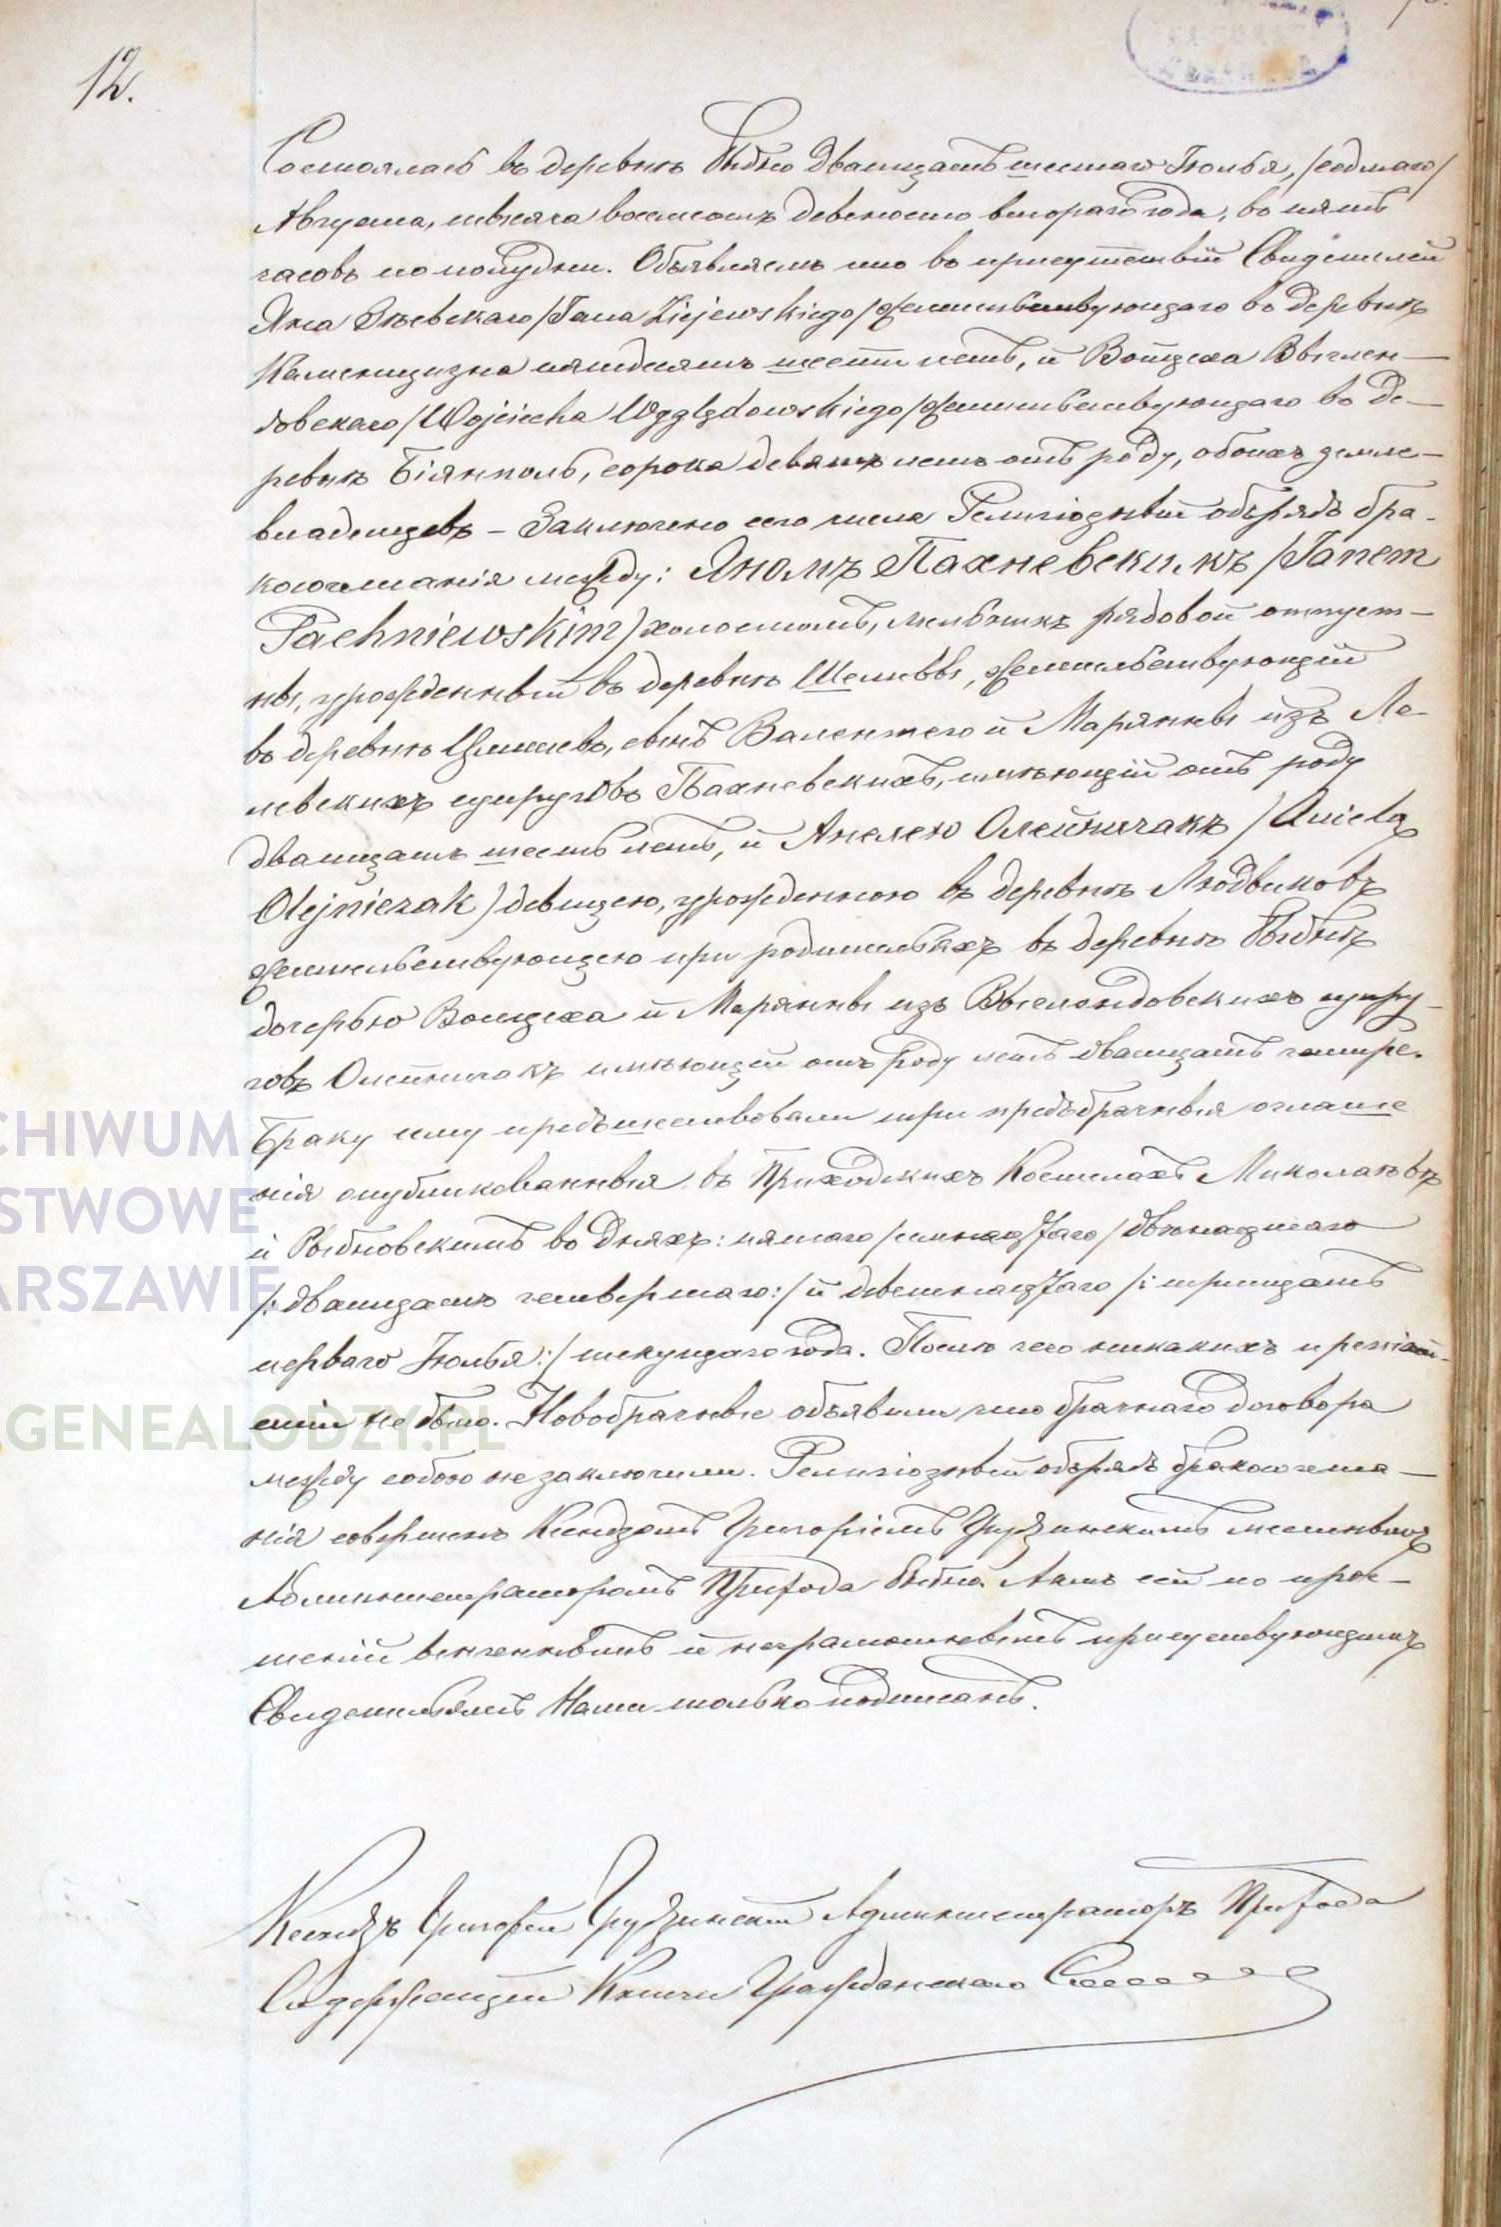 12.
Состоялась въ деревнѣ Рыбно двадцать шестаго Іюльа, /седмаго/
Августа, тысяча восемсотъ девеносто втораго года, во пять
часовъ по полудни. Объявляемъ что во присутствіи Свидетелей
Яна Зѣевскаго /Jana Ziejewskiego/ жительствующаго во деревнѣ
Каменщизна пятдесятъ шесть летъ, и Войцеха Выглен-
довскаго /Wojciecha Wyględowskiego/ жительствующаго во де-
ревнѣ Біянполь, сорока девять летъ отъ роду, обоихъ земле-
владельцевъ – Заключено сего числа Религіозный обърядъ бра-
косочетанія между: Яномъ Пахневскимъ /Janem
Pachniewskim/ холостымъ, рядовой отпуст-
ны, урожденный въ деревнѣ жительствующій
въ деревнѣ сынъ Валентего и Марянны изъ Ле-
невскихъ супруговъ Пахневскихъ, имѣющій отъ роду
двадцать шесть летъ, и Анелею Олейничакъ /Anielą
Olejniczak/ девицею, урожденною въ деревнѣ Людвиковъ
жительствующею при родительяхъ въ деревнѣ Рыбнѣ
дочерью Войцеха и Марянны изъ Выглондовскихъ супру-
говъ Олейничакъ имѣющей отъ роду летъ двадцать четыре.
Браку сему предъшествовали три предъбрачныя оглаше
нія опубликованныя въ Приходскихъ Костелахъ Миколаевѣ
и Рыбновскимъ во дняхъ: пятаго /семнадцаго/ двѣнадцтаго
/: двадцать четвертаго :/ и деветнадцаго /: тридцать
перваго Іюльа :/ текущаго года. Послѣ чего никакихъ препіат-
ствій не было. Новобрачные объявили что брачнаго договора
между собою не заключили. Религіозный обърядъ бракосочета-
нія совершенъ Ксендземъ Григоріемъ Грудзинскимъ местнымъ
Администраторомъ Прихода Рыбно. Актъ сей по проч-
теній венченнымъ и неграмотнымъ присутствующимъ
Свидетельямъ Нами только подписанъ.
Ксендзъ Григорій Грудзинскій Администраторъ Прихода
Содержащій Книги Гражданскаго
ARCHIWUM
PAŃSTWOWE
WARSZAWIE
GENEALODZY.PL